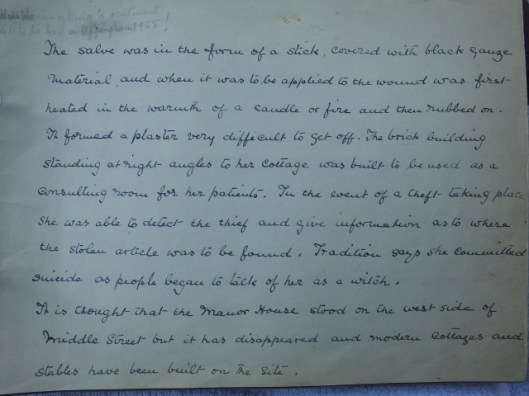 ointment
The salve was in the form of a stick, covered with black gauze
material, and when it was to be applied to the wound was first
heated in the warmth of a candle or fire and then rubbed on.
It formed a plaster very difficult to get off. The brick building
standing at right angles to her cottage was built to be used as a
consulting room for her patients. In the event of a theft taking place
she was able to detect the thief and give information as to where
the stolen article was to be found. Tradition says she committed
suicide as people began to talk of her as a witch.
It is thought that the Manor House stood on the west side of
Middle Street but it has disappeared and modern cottages and
stables have been built on the site.